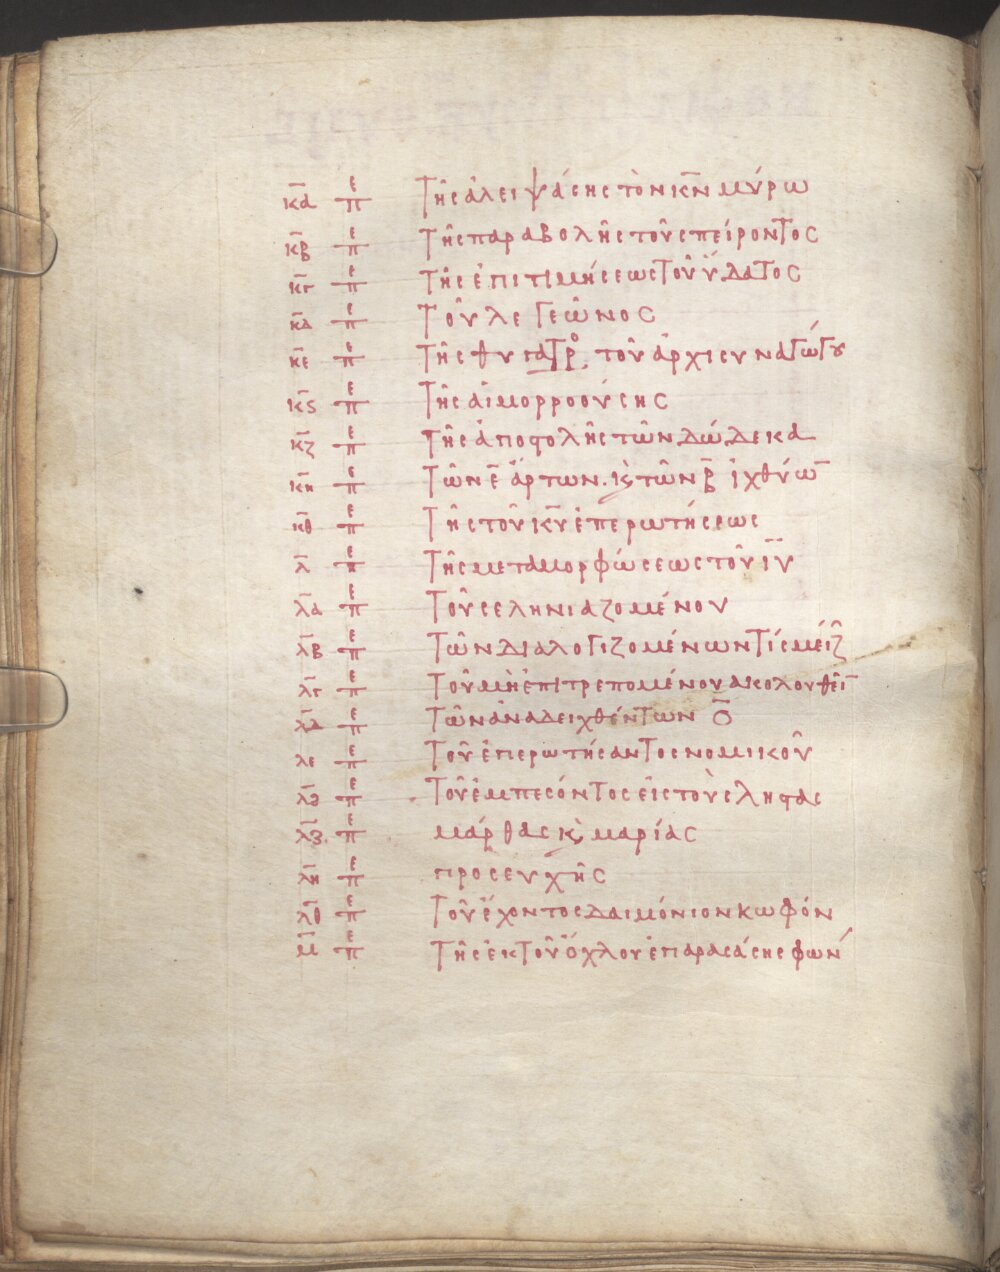 κ̅α̅ πε Τῆς ἀλειψάσης τὸν κ̅ν̅ μύρω
κ̅β̅ πε Τῆς παραβολῆς τοῦ σπείροντος
κ̅γ̅ πε Τῆς ἐπιτιμήσεως τοῦ ὕδατος
κ̅δ̅ πε Τοῦ λεγεῶνος
κ̅ε̅ πε Τῆς θυγατρο τοῦ ἀρχισυναγώγου
κ̅ς̅ πε Τῆς αἱμορροούσης
κ̅ζ̅ πε Τῆς ἀποστολῆς τῶν δώδεκα
κ̅η̅ πε Τῶν ε̅ ἄρτων. κ̀ τῶν β̅ ἰχθύω̅
κ̅θ̅ πε Τῆς τοῦ κ̅υ̅ ἐπερωτήσεως
λ̅ πε Τῆς μεταμορφώσεως τοῦ ι̅υ̅
λ̅α̅ πε Τοῦ σεληνιαζομένου
λ̅β̅ πε Τῶν διαλογιζομένων τίς μείζ
λ̅γ̅ πε Τοῦ μὴ ἐπιτρεπομένου ἀκολουθεῖ̅
λ̅δ̅ πε Τῶν ἀναδειχθέντων ο̅
λ̅ε̅ πε Τοῦ ἐπερωτήσαντος νομικοῦ
λ̅ς̅ πε Τοῦ ἐμπεσόντος εἰς τοὺς ληστάς
λ̅ζ̅ πε μάρθας κ̀ μαρίας
λ̅η̅ πε προσευχῆς
λ̅θ̅ πε Τοῦ ἔχοντος δαιμόνιον κωφόν
μ̅ πε Τῆς ἐκ τοῦ ὄχλου ἐπαρασάσης φων